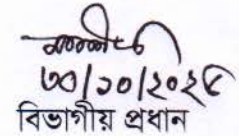 ৩০/১০/২০২৫
বিভাগীয় প্রধান